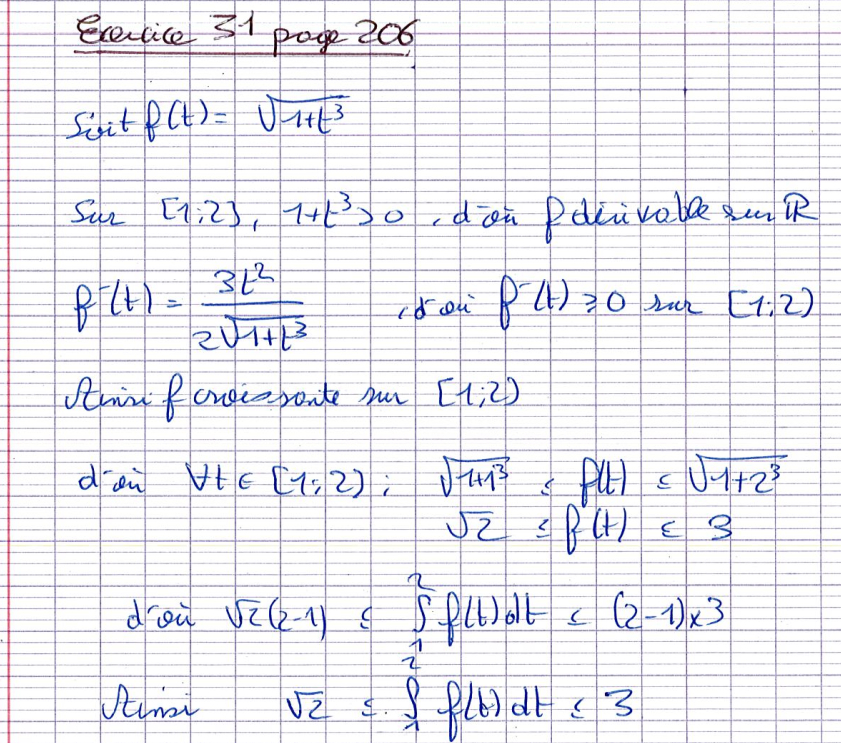 Exercice 31 page 206
Soit f(t) = √(1+t³)
Sur [1;2], 1+t³>0, d'où f dérivable sur ℝ
f'(t) = 3t² / (2√(1+t³)) , d'où f'(t) ≥ 0 sur [1;2)
Ainsi f croissante sur [1;2)
d'où ∀t ∈ [1;2); √(1+1³) ≤ f(t) ≤ √(1+2³)
√2 ≤ f(t) ≤ 3
d'où √2(2-1) ≤ ∫₁² f(t)dt ≤ (2-1)×3
Ainsi √2 ≤ ∫₁² f(t)dt ≤ 3